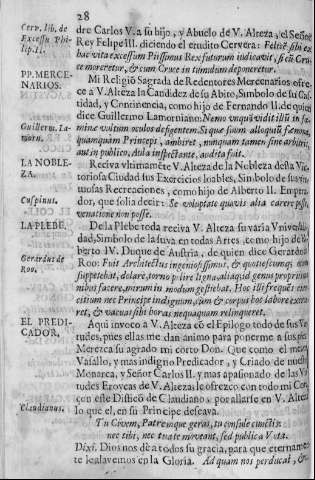 28
Cerv. lib. de
Excessu Phi-
lip. II.
dre Carlos V. a su hijo, y Abuelo de V. Alteza, el Señor
Rey Felipe III. diciendo el erudito Cervera: Felicē sibi ex
hac vita excessum Piissimus Rex futurum iudicavit, si cū Cru-
te moreretur, & cum Cruce in tumulum deponeretur.
PP. MERCE-
NARIOS.
Mi Religiō Sagrada de Redentores Mercenarios ofre-
ce a V. Alteza la Candidez de su Abito, Simbolo de su Cas-
tidad, y Continencia, como hijo de Fernando II. de quien
Guillerm. La-
morn.
dice Guillermo Lamorniano: Nemo unquā vidit illū in fæ-
mine vultum oculos defigentem. Si quæ suum alloquuta fæmina,
quamquam Princeps, ambiret, nunquam tamen sine arbitris,
aut in publico, Aula inspectante, audita fuit.
LA NOBLE-
ZA.
Reciva vltimamēte V. Alteza de la Nobleza desta Vic-
toriosa Ciudad sus Exercicios loables, Simbolo de sus vir-
tuosas Recreaciones, como hijo de Alberto II. Empera-
Cuspinus.
dor, que solia decir: Se voluptate quavis alia carere posse,
venatione non posse.
LA PLEBE.
De la Plebe toda reciva V. Alteza su varia Vniversi-
dad, Simbolo de la suya en todas Artes, como hijo de Al-
berto IV. Duque de Austria, de quien dice Gerardo de
Gerardus de
Roo.
Roo: Fuit Architectus ingeniosissimus, & quotiescumq; otium
suppetebat, dolare, torno polire ligna, aliaq; id genus proprijs ma-
nibus facere, mirum in modum gestiebat. Hoc illi frequēs exer-
citium nec Principe indignum, cùm & corpus hoc labore exerce-
ret, & vacuas sibi horas nequaquam relinqueret.
EL PREDI-
CADOR.
Aqui invoco a V. Alteza cō el Epilogo todo de sus Vir-
tudes, pues ellas me dan animo para ponerme a sus pies.
Merezca su agrado mi corto Don. Que como el menor
Vasallo, y mas indigno Predicador, y Criado de nuestro
Monarca, y Señor Carlos II. y mas apasionado de las Vir-
tudes Eroycas de V. Alteza le ofrezco con todo mi Cora-
Claudianus.
çon este Distico de Claudiano, por allarse en V. Alteza
lo que el, en su Principe deseava.
Tu Civem, Patremque geras, tu consule cunctis:
nec tibi, nec tua te moveant, sed publica Vota.
Dixi. Dios nos dè a todos su gracia, para que eternamen-
te le alavemos en la Gloria. Ad quam nos perducat, &c.